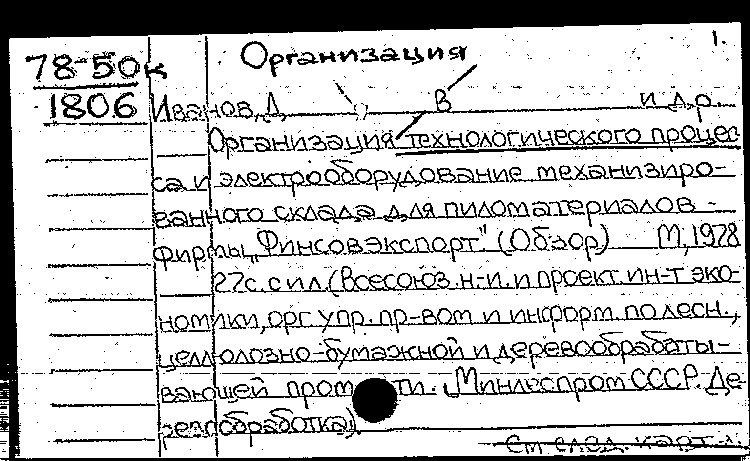 Организация 1.
78-50к
1806 Иванов, Д. В и др.
Организация технологического процес
са и электрооборудование механизиро-
ванного склада для пиломатериалов -
фирмы „Финсовэкспорт" (Обзор) М, 1978
27с. с ил. (Всесоюз. н-и. и проект. ин-т эко-
номики, орг. упр. пр-вом и информ. по лесн.,
целлюлозно-бумажной и деревообрабаты-
вающей пром ти. (Минлеспром СССР. Де-
ревообработка).
См след. карт